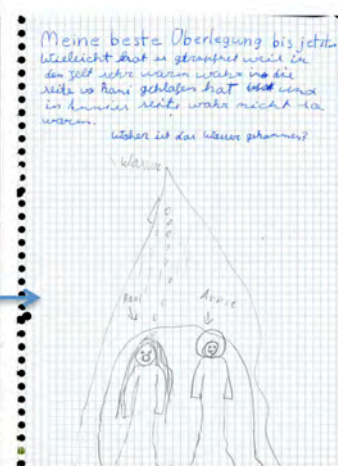 Meine beste Überlegung bis jetzt.
Wieleicht hat es getropfnet weil in
den zelt sehr warm wahr wo die
seite wo Rani geschlafen hat und
in Annies seite wahr nicht so
warem.
Woher ist das Wasser gekommen?
Wasser
Rani
Annie